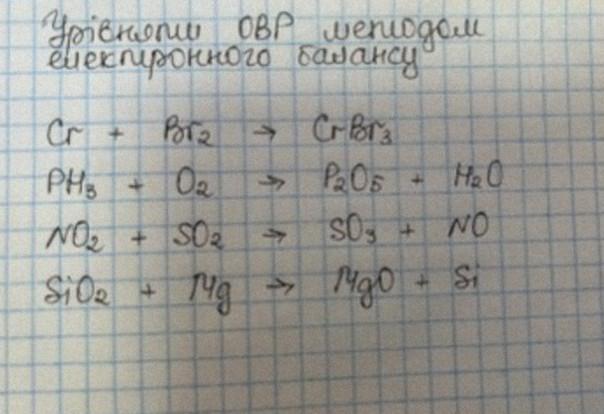 Урівняти ОВР методом
електронного балансу
Cr + Br₂ → CrBr₃
PH₃ + O₂ → P₂O₅ + H₂O
NO₂ + SO₂ → SO₃ + NO
SiO₂ + Mg → MgO + Si